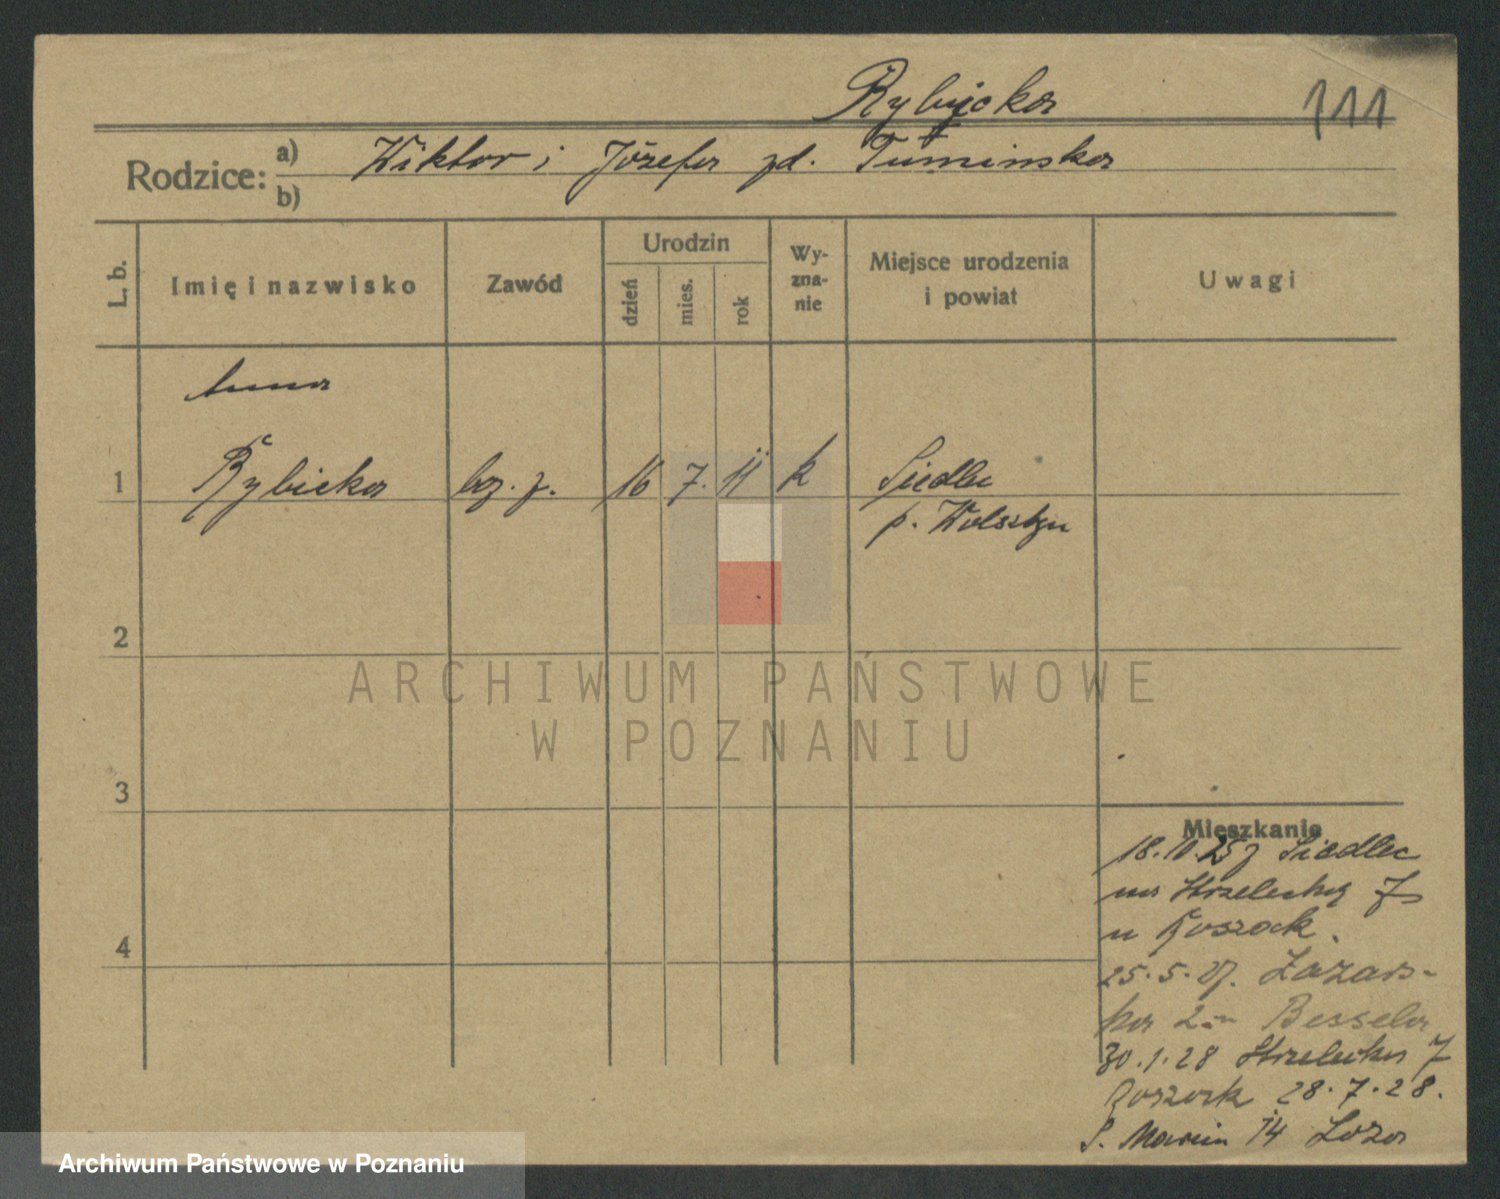 Rybicka
111
Rodzice: a) Wiktor i Józefa zd. Tumińska
b)
L. b.
Imię i nazwisko
Zawód
Urodzin
dzień
mies.
rok
Wy-
zna-
nie
Miejsce urodzenia
i powiat
Uwagi
Anna
1 Rybicka bez. z. 16 7. 11 k Siedlec
p. Wolsztyn
2
3
4
Mieszkanie
18.10.25 z Siedlec
na Strzelecką 7
u
25.5.27. Łazars-
ka 2 Bessela
30.1.28 Strzelecka 7
28.7.28.
Ś. Marcin 74
ARCHIWUM PAŃSTWOWE
W POZNANIU
Archiwum Państwowe w Poznaniu